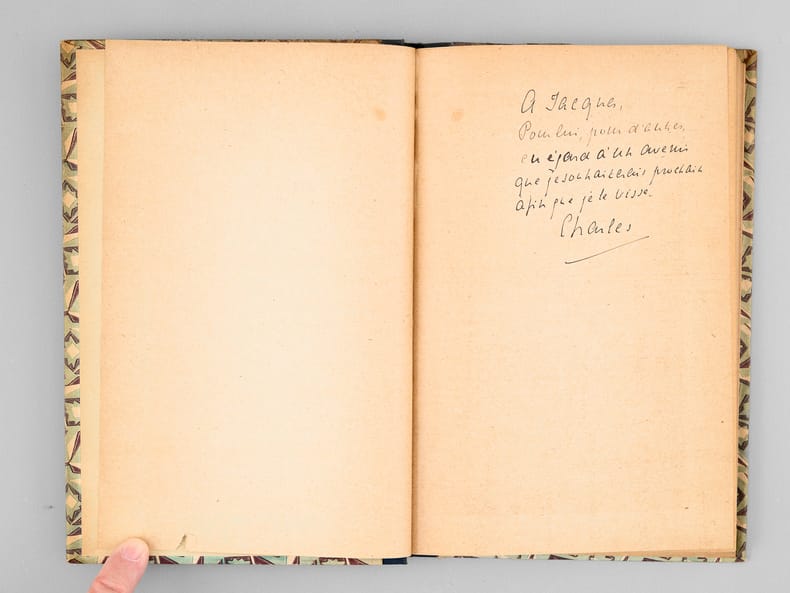 A Jacques,
Pour lui, pour d'autres,
en égard à un avenir
que je souhaiterais prochain
afin que je le visse.
Charles